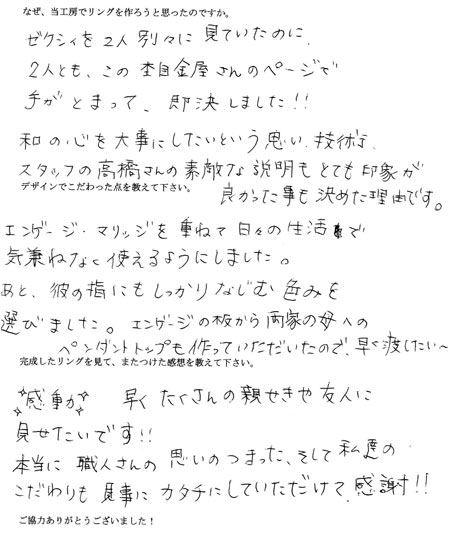 なぜ、当工房でリングを作ろうと思ったのですか。
ゼクシィを2人別々に見ていたのに、
2人とも、この杢目金屋さんのページで
手がとまって、即決しました!!
和の心を大事にしたいという思い、技術も、
スタッフの高橋さんの素敵な説明もとても印象が
良かった事も決めた理由です。
デザインでこだわった点を教えて下さい。
エンゲージ・マリッジを重ねて日々の生活で
気兼ねなく使えるようにしました。
あと、彼の指にもしっかりなじむ色みを
選びました。エンゲージの板から両家の母への
ペンダントトップも作っていただいたので、早く渡したい〜
完成したリングを見て、またつけた感想を教えて下さい。
感動が 早くたくさんの親せきや友人に
見せたいです!!
本当に職人さんの思いのつまった、そして私達の
こだわりも見事にカタチにしていただけて感謝!!
ご協力ありがとうございました!